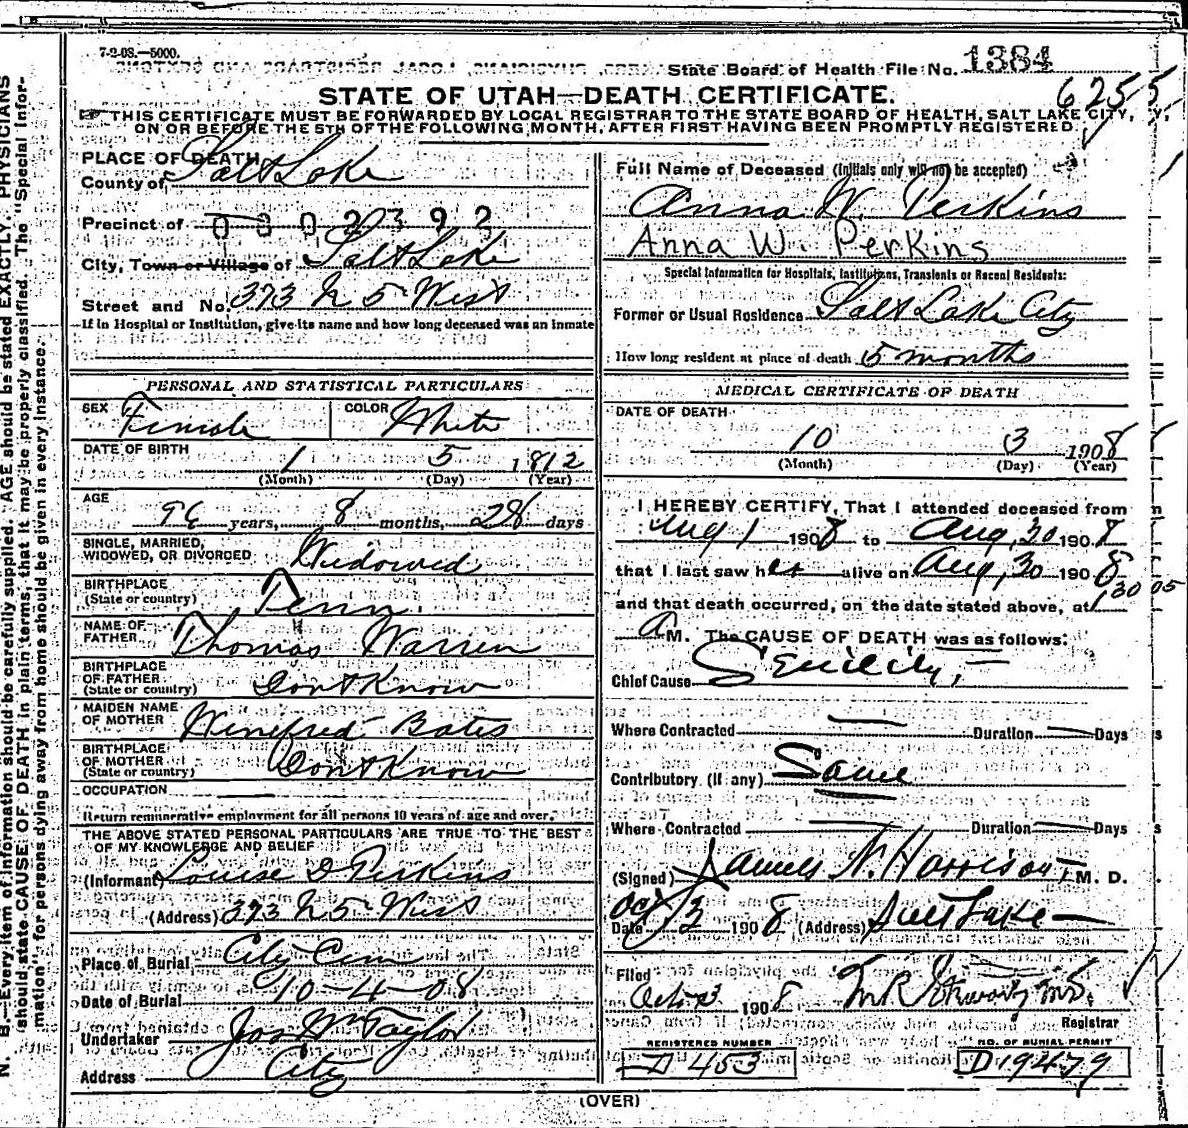 7-9-08.—5000.
State Board of Health File No. 1384
6255
STATE OF UTAH—DEATH CERTIFICATE.
THIS CERTIFICATE MUST BE FORWARDED BY LOCAL REGISTRAR TO THE STATE BOARD OF HEALTH, SALT LAKE CITY,
ON OR BEFORE THE 5TH OF THE FOLLOWING MONTH, AFTER FIRST HAVING BEEN PROMPTLY REGISTERED.
PLACE OF DEATH
County of Salt Lake
Precinct of
City, Town or Village of Salt Lake
Street and No. 373 N 5 West
If in Hospital or Institution, give its name and how long deceased was an inmate
PERSONAL AND STATISTICAL PARTICULARS
SEX Female COLOR White
DATE OF BIRTH
1 5 1812
(Month) (Day) (Year)
AGE
96 years, 8 months, 28 days
SINGLE, MARRIED,
WIDOWED, OR DIVORCED Widowed
BIRTHPLACE
(State or country) Tenn.
NAME OF
FATHER Thomas Warren
BIRTHPLACE
OF FATHER
(State or country) Dont Know
MAIDEN NAME
OF MOTHER Winefred Bates
BIRTHPLACE
OF MOTHER
(State or country) Dont Know
OCCUPATION
Return remunerative employment for all persons 10 years of age and over.
THE ABOVE STATED PERSONAL PARTICULARS ARE TRUE TO THE BEST
OF MY KNOWLEDGE AND BELIEF
(Informant) Louise D Perkins
(Address) 373 N 5 West
Place of Burial City Cem
Date of Burial 10-4-08
Undertaker Jos Wm Taylor
Address City
Full Name of Deceased (Initials only will not be accepted)
Anna W. Perkins
Anna W. Perkins
Special Information for Hospitals, Institutions, Transients or Recent Residents:
Former or Usual Residence Salt Lake City
How long resident at place of death 5 months
MEDICAL CERTIFICATE OF DEATH
DATE OF DEATH
10 3 1908
(Month) (Day) (Year)
I HEREBY CERTIFY, That I attended deceased from
Aug 1 1908 to Aug, 30 1908
that I last saw her alive on Aug, 30 1908
and that death occurred, on the date stated above, at 1,30
A M. The CAUSE OF DEATH was as follows:
Chief Cause Senility,
Where Contracted — Duration — Days
Contributory (if any) Same
Where Contracted — Duration — Days
(Signed) James N. Harrison, M. D.
Date Oct 3 1908 (Address) Salt Lake
Filed
Oct 3 1908
Registrar
REGISTERED NUMBER
D 453
NO. OF BURIAL PERMIT
D 19479
(OVER)
N. B.—Every item of information should be carefully supplied. AGE should be stated EXACTLY. PHYSICIANS
should state CAUSE OF DEATH in plain terms, that it may be properly classified. The "Special Infor-
mation" for persons dying away from home should be given in every instance.